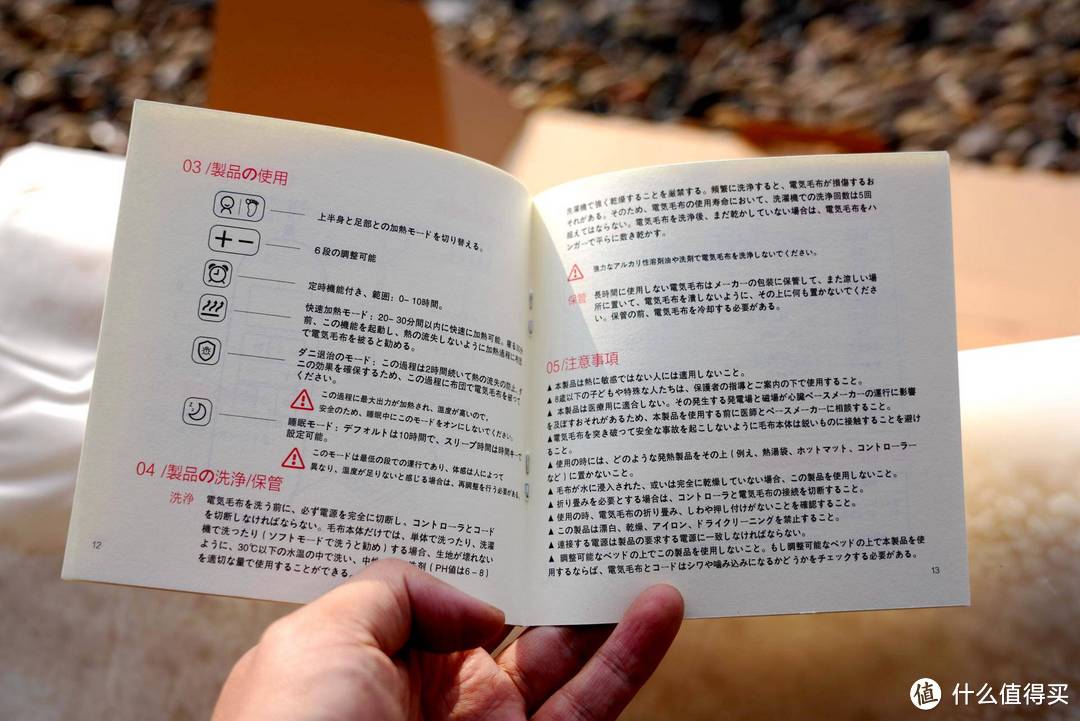 03 /製品の使用
上半身と足部との加熱モードを切り替える。
6段の調整可能
定時機能付き、範囲:0-10時間。
快速加熱モード:20-30分間以内に快速に加熱可能。寝る
前、この機能を起動し、熱の流失しないように加熱過程に布団
で電気毛布を被ると勧める。
ダニ退治のモード:この過程は2時間続いて熱の流失の防止、ダ
ニの効果を確保するため、この過程に布団で電気毛布を被って
ください。
この過程に最大出力が加熱され、温度が高いので、
安全のため、睡眠中にこのモードをオンにしないでください。
睡眠モード:デフォルトは10時間で、スリープ時間は時間キーで
設定可能。
このモードは最低の段での運行であり、体感は人によって
異なり、温度が足りないと感じる場合は、再調整を行う必要がある。
04 /製品の洗浄/保管
洗浄
電気毛布を洗う前に、必ず電源を完全に切断し、コントローラとコード
を切断しなければならない。毛布本体だけでは、単体で洗ったり、洗濯
機で洗ったり(ソフトモードで洗うと勧め)する場合、生地が壊れない
ように、30℃以下の水温の中で洗い、中性 洗剤(PH値は6-8)
を適切な量で使用することができる。
12
洗濯機で強く乾燥することを厳禁する。頻繁に洗浄すると、電気毛布が損傷するお
それがある。そのため、電気毛布の使用寿命において、洗濯機での洗浄回数は5回
超えてはならない。電気毛布を洗浄後、まだ乾かしていない場合は、電気毛布をハ
ンガーで平らに敷き乾かす。
強力なアルカリ性溶剤油や洗剤で電気毛布を洗浄しないでください。
保管
長時間に使用しない電気毛布はメーカーの包装に保管して、また涼しい場
所に置いて、電気毛布を潰しないように、その上に何も置かないでくださ
い。保管の前、電気毛布を冷却する必要がある。
05 /注意事項
▲ 本製品は熱に敏感ではない人には適用しないこと。
▲ 8歳以下の子どもや特殊な人たちは、保護者の指導とご案内の下で使用すること。
▲ 本製品は医療用に適合しない。その発生する発電場と磁場が心臓ペースメーカーの運行に影響
を及ぼすおそれがあるため、本製品を使用する前に医師とペースメーカーに相談すること。
▲電気毛布を突き破って安全な事故を起こしないように毛布本体は鋭いものに接触することを避け
ること。
▲ 使用の時には、どのような発熱製品をその上(例え、熱湯袋、ホットマット、コントローラー
など)に置かないこと。
▲ 毛布が水に浸入された、或いは完全に乾燥していない場合、この製品を使用しないこと。
▲ 折り畳みを必要とする場合は、コントローラと電気毛布の接続を切断すること。
▲ 使用の時、電気毛布の折り畳み、しわや押し付けがないことを確認すること。
▲ この製品は漂白、乾燥、アイロン、ドライクリーニングを禁止すること。
▲ 連接する電源は製品の要求する電源に一致しなければならない。
▲ 調整可能なベッドの上でこの製品を使用しないこと。もし調整可能なベッドの上で本製品を使
用するならば、電気毛布とコードはシワや噛み込みになるかどうかをチェックする必要がある。
13
值 什么值得买